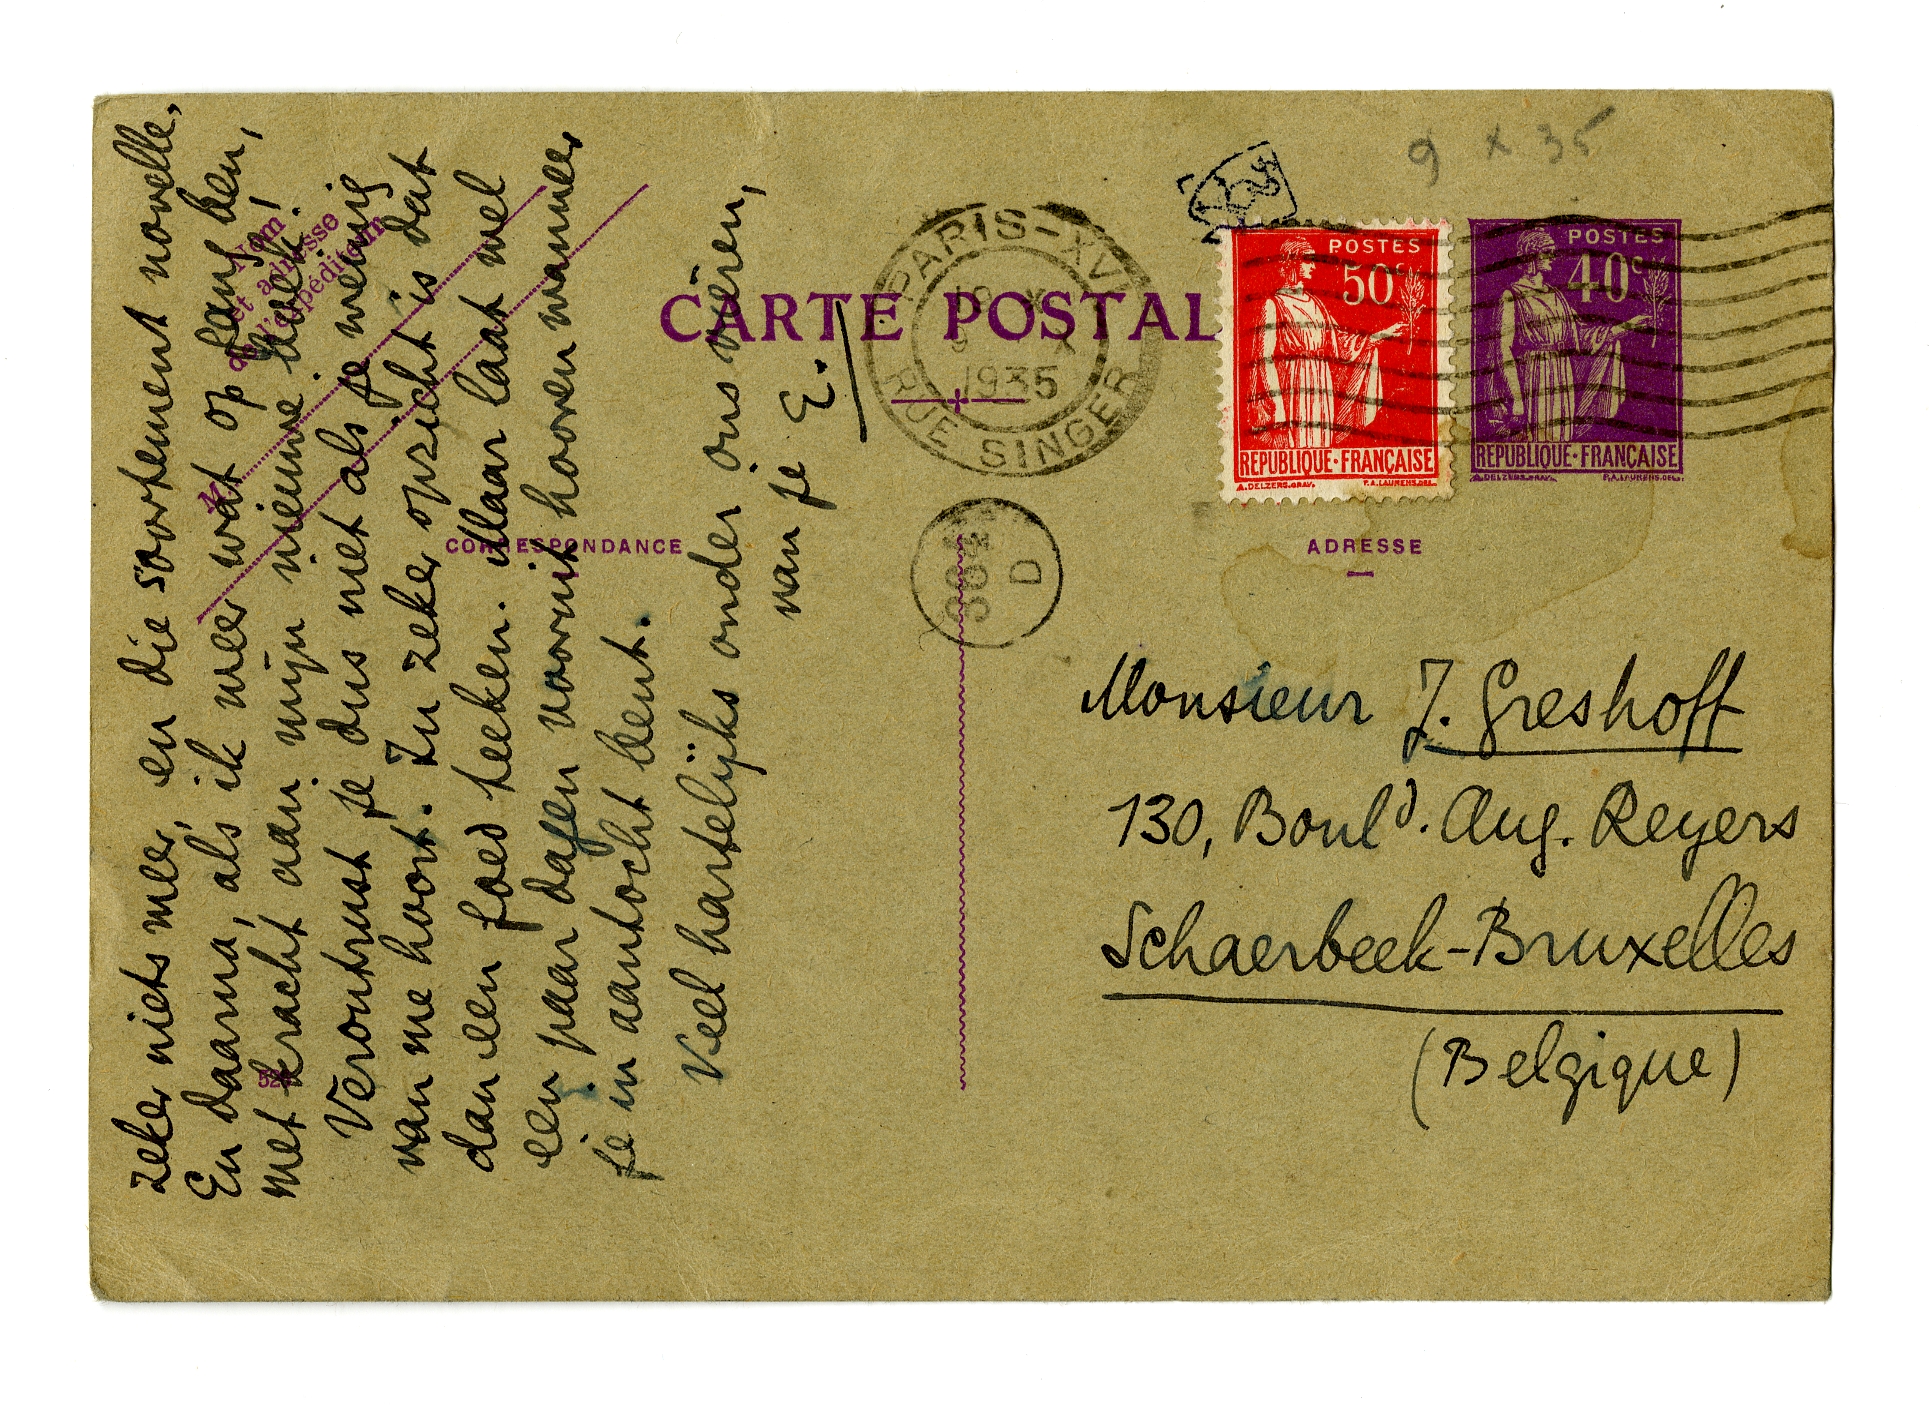 zeker niets meer, en die soortement novelle,
En daarna, als ik weer wat op gang ben,
met kracht aan mijn nieuwe boek!
Verontrust je dus niet als je weinig
van me hoort. In zeker opzicht is dat
dan een goed teeken. Maar laat wel
een paar dagen vooruit hooren wanneer
je in aantocht bent.
Veel hartelijks onder ons vieren,
van je E.
Nom
et adresse
de l'expéditeur
M
CARTE POSTAL
CORRESPONDANCE
ADRESSE
PARIS-XVI
19
1935
RUE SINGER
3084
D
9 X 35
POSTES
50c
REPUBLIQUE·FRANÇAISE
A.DELZERS.GRAV. P.A.LAURENS.DEL.
POSTES
40c
REPUBLIQUE·FRANÇAISE
A.DELZERS.GRAV. P.A.LAURENS.DEL.
Monsieur J. Greshoff
130, Bould. Aug. Reyers
Schaerbeek-Bruxelles
(Belgique)